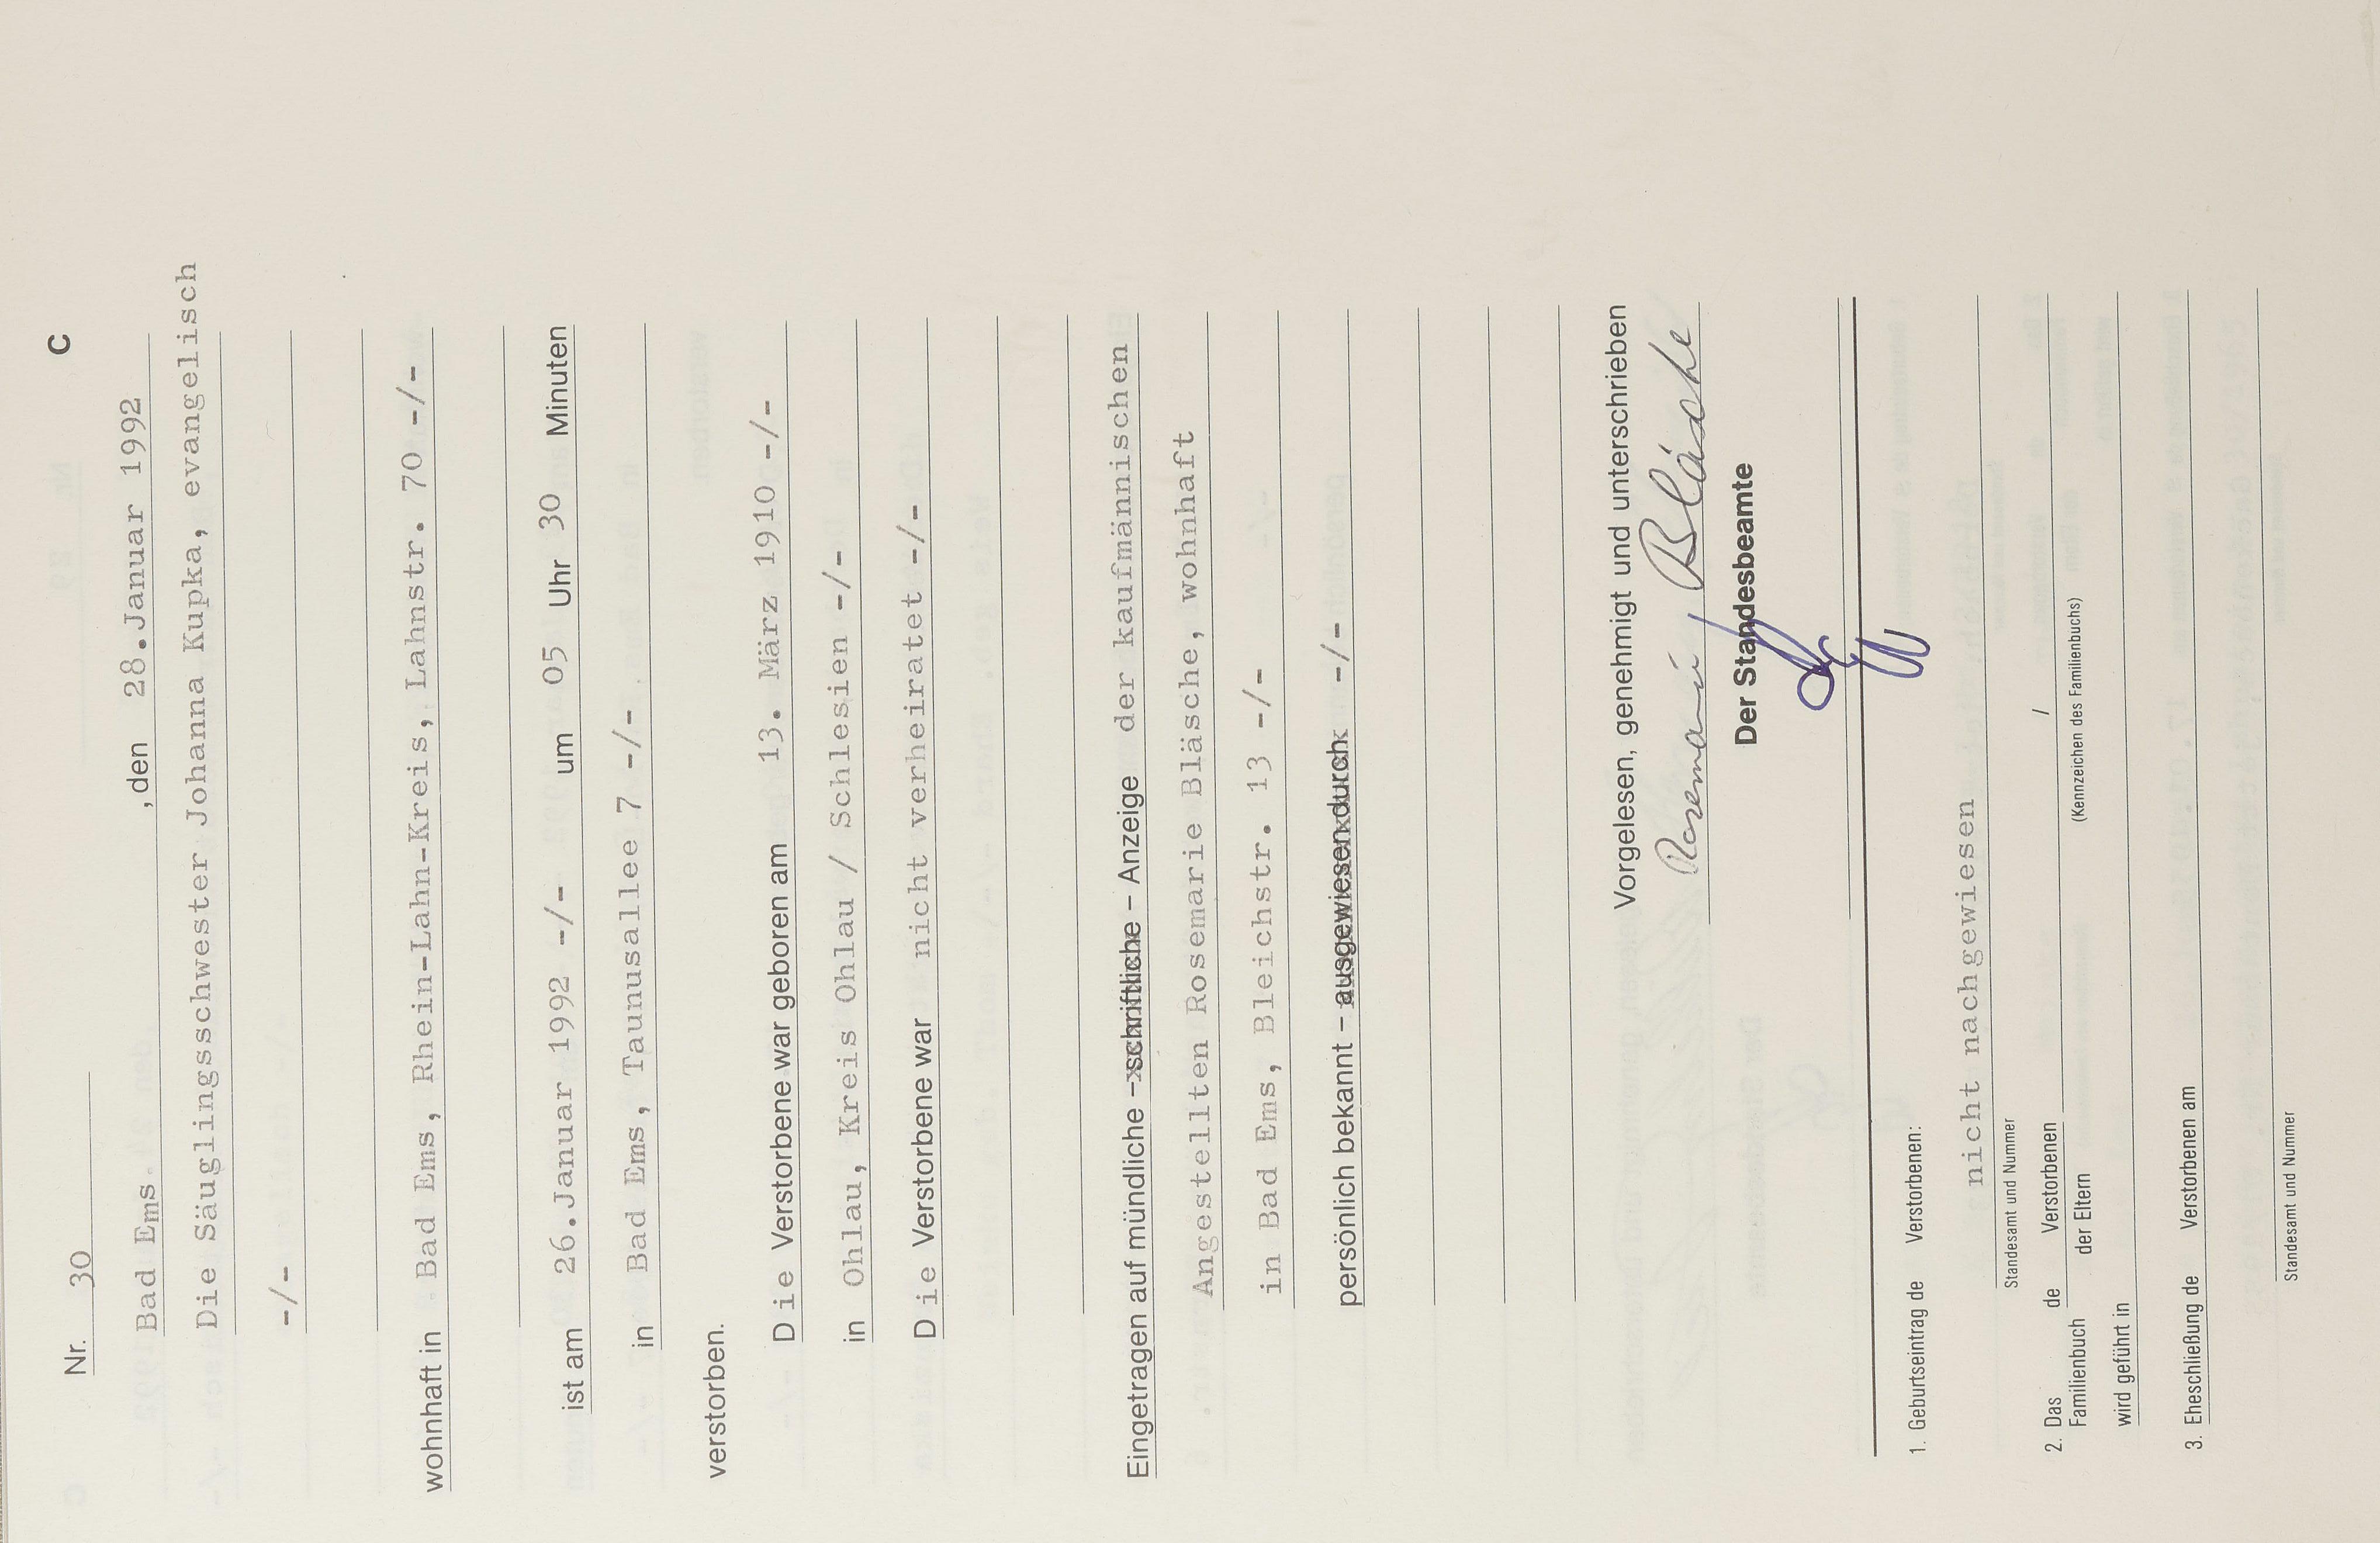 C
Nr. 30
Bad Ems , den 28.Januar 1992
Die Säuglingsschwester Johanna Kupka, evangelisch
-/-
wohnhaft in Bad Ems, Rhein-Lahn-Kreis, Lahnstr. 70 -/-
ist am 26.Januar 1992 -/- um 05 Uhr 30 Minuten
in Bad Ems, Taunusallee 7 -/-
verstorben.
Die Verstorbene war geboren am 13. März 1910 -/-
in Ohlau, Kreis Ohlau / Schlesien -/-
Die Verstorbene war nicht verheiratet -/-
Eingetragen auf mündliche – schriftliche – Anzeige der kaufmännischen
Angestellten Rosemarie Bläsche, wohnhaft
in Bad Ems, Bleichstr. 13 -/-
persönlich bekannt – ausgewiesen durch -/-
Vorgelesen, genehmigt und unterschrieben
Rosemarie Bläsche
Der Standesbeamte
1. Geburtseintrag de Verstorbenen:
nicht nachgewiesen
Standesamt und Nummer
2. Das de Verstorbenen /
Familienbuch der Eltern (Kennzeichen des Familienbuchs)
wird geführt in
3. Eheschließung de Verstorbenen am
Standesamt und Nummer